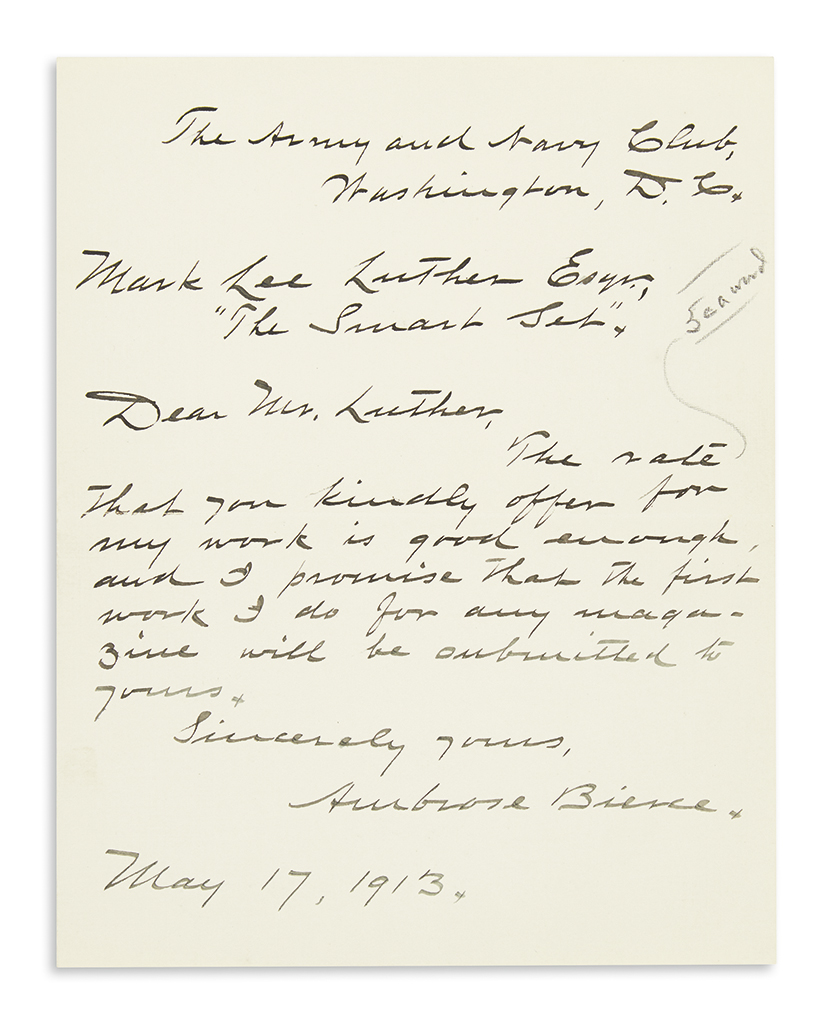 The Army and Navy Club,
Washington, D. C.
Mark Lee Luther Esqr.,
"The Smart Set".
Dear Mr. Luther,
The rate
that you kindly offer for
my work is good enough,
and I promise that the first
work I do for any maga-
zine will be submitted to
yours.
Sincerely yours,
Ambrose Bierce.
May 17, 1913.